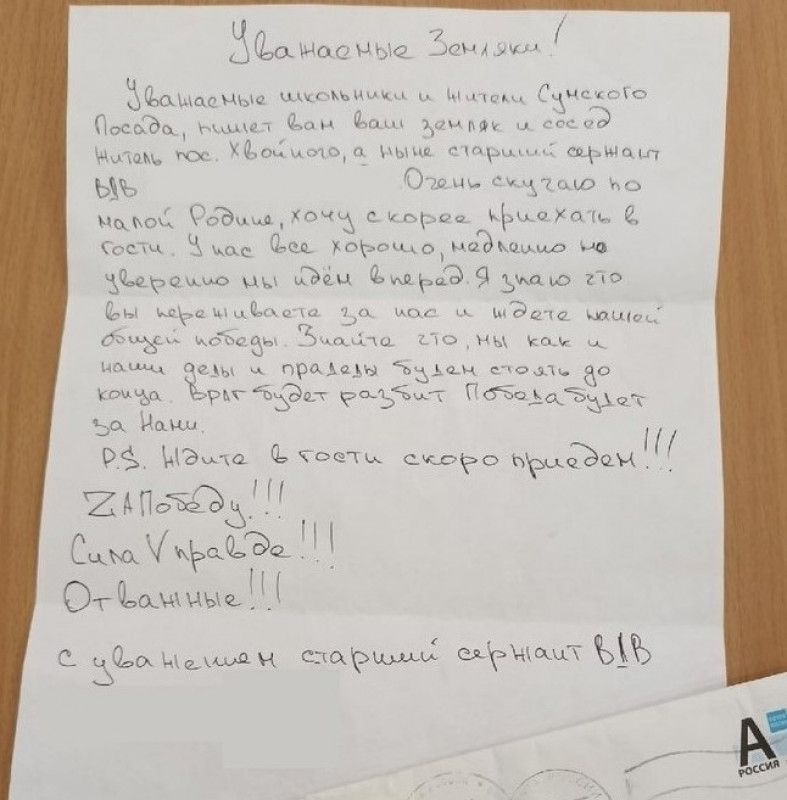 Уважаемые Земляки!
Уважаемые школьники и жители Сумского
Посада, пишет вам ваш земляк и сосед
житель пос. Хвойного, а ныне старший сержант
ВДВ Очень скучаю по
малой Родине, хочу скорее приехать в
гости. У нас все хорошо, медленно но
уверенно мы идём вперед. Я знаю что
вы переживаете за нас и ждете нашей
общей победы. Знайте что, мы как и
наши деды и прадеды будем стоять до
конца. Враг будет разбит Победа будет
за Нами.
P.S. Ждите в гости скоро приедем!!!
ZАПобеду!!!
Сила V правде!!!
Отважные!!!
С уважением старший сержант ВДВ
А
РОССИЯ